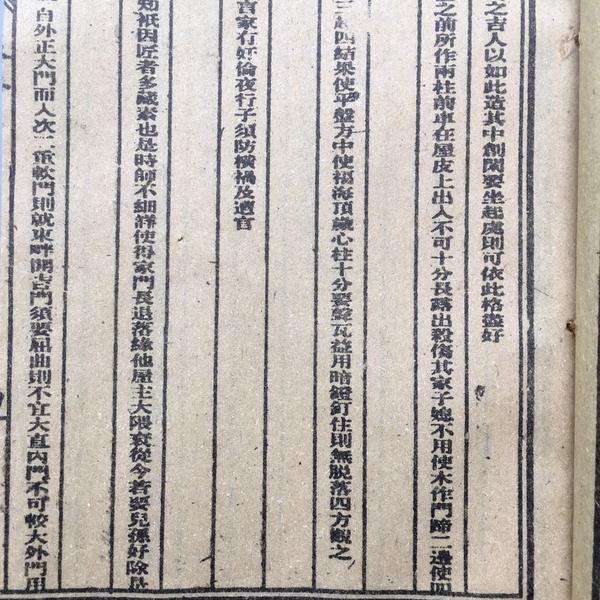 之吉人以如此造其中創閣要坐起處則可依此格儘好
之前所作兩柱前車在屋皮上出人不可十分長露出殺傷其家子媳不用使木作門蹄二邊使四
三起四結果使平盤方中使福海頂藏心柱十分要聳瓦益用暗鐙釘住則無脫落四方觀之
言家有好倫夜行子須防橫禍及遭官
知祇因匠者多藏素也是時師不細詳使得家門長退落緣他屋主大隈衰從今若要兒孫好除是
自外正大門而入次二重較門則就東畔開吉門須要屈曲則不宜大直內門不可較大外門用